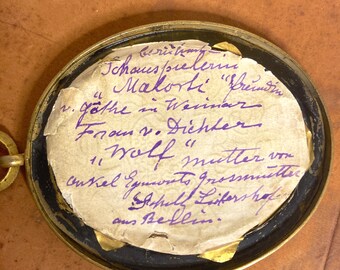 berühmte
Schauspielerin
"Malosti" Freundin
v. Göthe in Weimar
Frau v. Dichter
"Wolf" mutter von
onkel Grossmutter
aus Berlin.